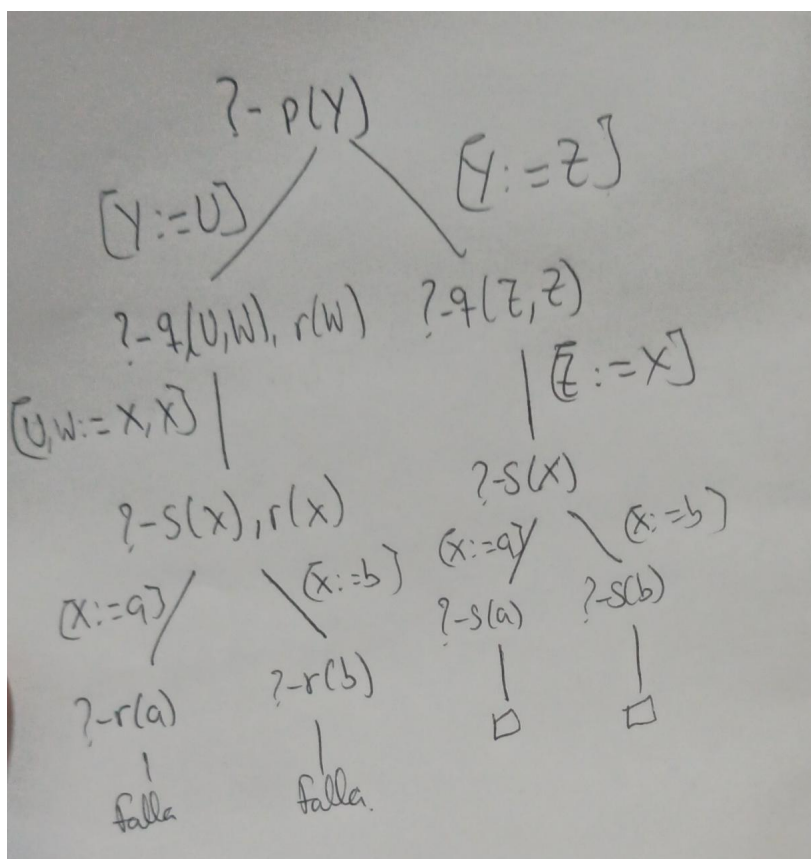 ?- p(Y)
[Y:=U] [Y:=Z]
?-q(U,W), r(W) ?-q(Z,Z)
[U,W:=X,X] [Z:=X]
?-s(X), r(X) ?-s(X)
[X:=a] [X:=b] [X:=a] [X:=b]
?-r(a) ?-r(b) ?-s(a) ?-s(b)
falla falla.